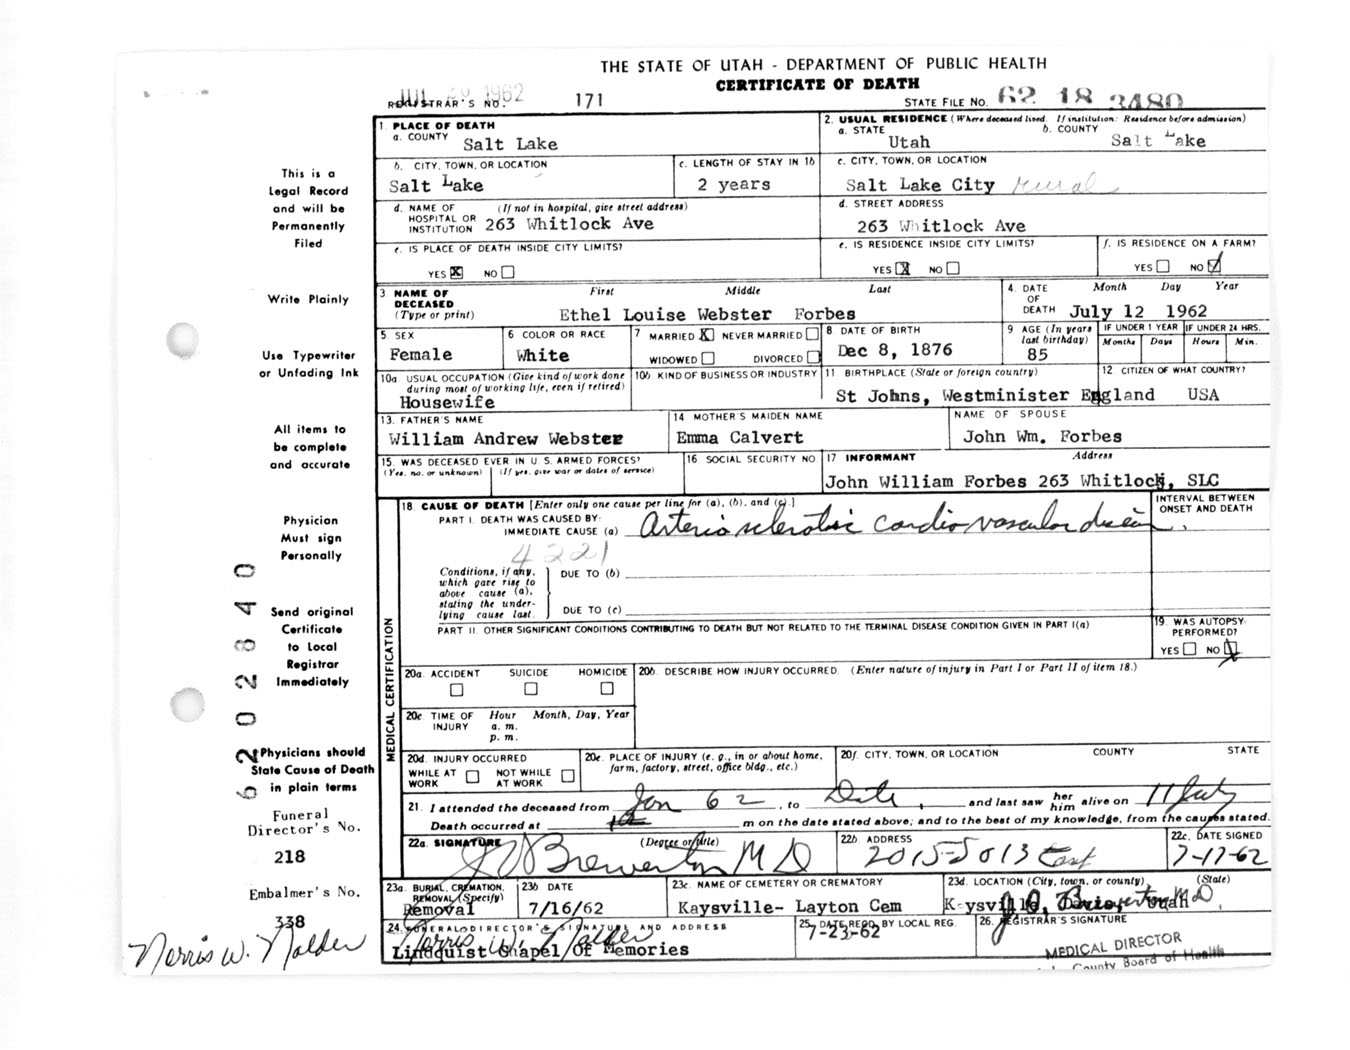 THE STATE OF UTAH - DEPARTMENT OF PUBLIC HEALTH
CERTIFICATE OF DEATH
1962
REGISTRAR'S NO. 171 STATE FILE NO. 62 18 3480
1. PLACE OF DEATH
a. COUNTY Salt Lake
2. USUAL RESIDENCE (Where deceased lived. If institution: Residence before admission)
a. STATE Utah b. COUNTY Salt Lake
b. CITY, TOWN, OR LOCATION Salt Lake
c. LENGTH OF STAY IN 1b 2 years
c. CITY, TOWN, OR LOCATION Salt Lake City rural
d. NAME OF HOSPITAL OR INSTITUTION (If not in hospital, give street address) 263 Whitlock Ave
d. STREET ADDRESS 263 Whitlock Ave
e. IS PLACE OF DEATH INSIDE CITY LIMITS? YES X NO
e. IS RESIDENCE INSIDE CITY LIMITS? YES X NO
f. IS RESIDENCE ON A FARM? YES NO
3 NAME OF DECEASED (Type or print) First Middle Last
Ethel Louise Webster Forbes
4. DATE OF DEATH Month Day Year
July 12 1962
5 SEX Female
6 COLOR OR RACE White
7 MARRIED X NEVER MARRIED
WIDOWED DIVORCED
8 DATE OF BIRTH Dec 8, 1876
9 AGE (In years last birthday) 85
IF UNDER 1 YEAR Months Days
IF UNDER 24 HRS. Hours Min.
10a USUAL OCCUPATION (Give kind of work done during most of working life, even if retired) Housewife
10b. KIND OF BUSINESS OR INDUSTRY
11 BIRTHPLACE (State or foreign country) St Johns, Westminister England
12 CITIZEN OF WHAT COUNTRY? USA
13. FATHER'S NAME William Andrew Webster
14 MOTHER'S MAIDEN NAME Emma Calvert
NAME OF SPOUSE John Wm. Forbes
15. WAS DECEASED EVER IN U. S. ARMED FORCES?
(Yes, no, or unknown) (If yes, give war or dates of service)
16 SOCIAL SECURITY NO
17 INFORMANT Address
John William Forbes 263 Whitlock, SLC
MEDICAL CERTIFICATION
18. CAUSE OF DEATH [Enter only one cause per line for (a), (b), and (c).]
INTERVAL BETWEEN ONSET AND DEATH
PART I. DEATH WAS CAUSED BY:
IMMEDIATE CAUSE (a) Arterio sclerotic cardio-vascular disease
4221
Conditions, if any, which gave rise to above cause (a), stating the underlying cause last.
DUE TO (b)
DUE TO (c)
PART II. OTHER SIGNIFICANT CONDITIONS CONTRIBUTING TO DEATH BUT NOT RELATED TO THE TERMINAL DISEASE CONDITION GIVEN IN PART I(a)
19. WAS AUTOPSY PERFORMED? YES NO X
20a. ACCIDENT SUICIDE HOMICIDE
20b. DESCRIBE HOW INJURY OCCURRED. (Enter nature of injury in Part I or Part II of item 18.)
20c. TIME OF INJURY Hour Month, Day, Year
a. m.
p. m.
20d. INJURY OCCURRED
WHILE AT WORK NOT WHILE AT WORK
20e. PLACE OF INJURY (e. g., in or about home, farm, factory, street, office bldg., etc.)
20f. CITY, TOWN, OR LOCATION COUNTY STATE
21. I attended the deceased from Jan 62, to Date, and last saw her him alive on 11 July
Death occurred at m on the date stated above; and to the best of my knowledge, from the causes stated.
22a. SIGNATURE (Degree or title) Brewerton M D
22b ADDRESS 2015-5013 East
22c. DATE SIGNED 7-17-62
23a. BURIAL, CREMATION, REMOVAL (Specify) Removal
23b DATE 7/16/62
23c. NAME OF CEMETERY OR CREMATORY Kaysville- Layton Cem
23d. LOCATION (City, town, or county) (State)
Kaysville, Utah
24 FUNERAL DIRECTOR'S SIGNATURE AND ADDRESS
Norris W. Nalder
Lindquist Chapel Of Memories
25. DATE RECD. BY LOCAL REG. 7-23-62
26. REGISTRAR'S SIGNATURE
Brewerton M D
MEDICAL DIRECTOR
County Board of Health
This is a
Legal Record
and will be
Permanently
Filed
Write Plainly
Use Typewriter
or Unfading Ink
All items to
be complete
and accurate
Physician
Must sign
Personally
Send original
Certificate
to Local
Registrar
Immediately
Physicians should
State Cause of Death
in plain terms
Funeral
Director's No.
218
Embalmer's No.
338
Norris W. Nalder
62 02840